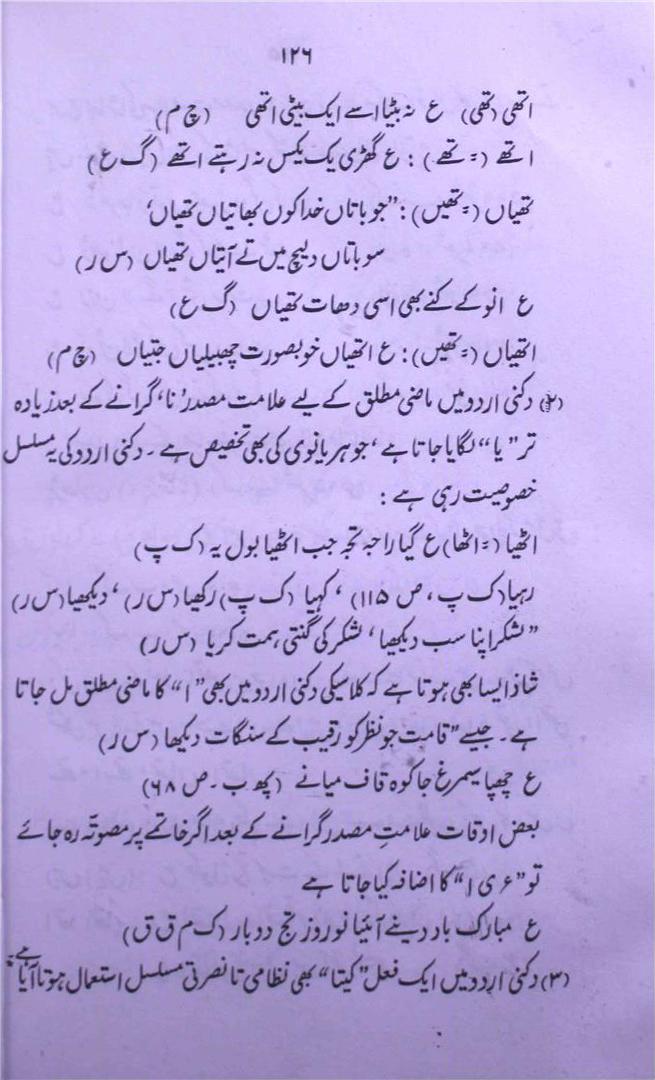 ۱۲۶
اتھی (تھی) ع نہ بیٹا اسے ایک بیٹی اتھی (چ م)
اتھے (= تھے) : ع گھڑی یک یکس نہ رہتے اتھے (گ ع)
تھیاں (= تھیں) : "جو باتاں خدا کوں بھاتیاں تھیاں'
سو باتاں دلیچ میں تے آتیاں تھیاں (س ر)
ع انو کے کنے بھی اسی دھات تھیاں (گ ع)
اتھیاں (= تھیں) : ع اتھیاں خوبصورت چھبیلیاں جتیاں (چ م)
(۲) دکنی اردو میں ماضی مطلق کے لیے علامت مصدر 'نا' گرانے کے بعد زیادہ
تر "یا" لگایا جاتا ہے' جو ہریانوی کی بھی تخصیص ہے ۔ دکنی اردو کی یہ مسلسل
خصوصیت رہی ہے :
اٹھیا (= اٹھا) ع گیا راجہ تجہ جب اٹھیا بول یہ (ک پ)
رہیا (ک پ ، ص ۱۱۵) ' کہیا (ک پ) رکھیا (س ر) ' دیکھیا (س ر)
"لشکر اپنا سب دیکھیا' لشکر کی گنتی ہمت کریا (س ر)
شاذ ایسا بھی ہوتا ہے کہ کلاسیکی دکنی اردو میں بھی "ا" کا ماضی مطلق مل جاتا
ہے ۔ جیسے "قامت جو نظر کو رقیب کے سنگات دیکھا (س ر)
ع چھپا سیمرغ جا کوہ قاف میانے (پھ ب ۔ ص ۶۸)
بعض اوقات علامتِ مصدر گرانے کے بعد اگر خاتمے پر مصوتہ رہ جائے
تو "ء ی ا" کا اضافہ کیا جاتا ہے
ع مبارک باد دینے آئیا نوروز تج دوبار (ک م ق ق)
(۳) دکنی اردو میں ایک فعل "کیتا" بھی نظامی تا نصرتی مسلسل استعمال ہوتا آیا ہے